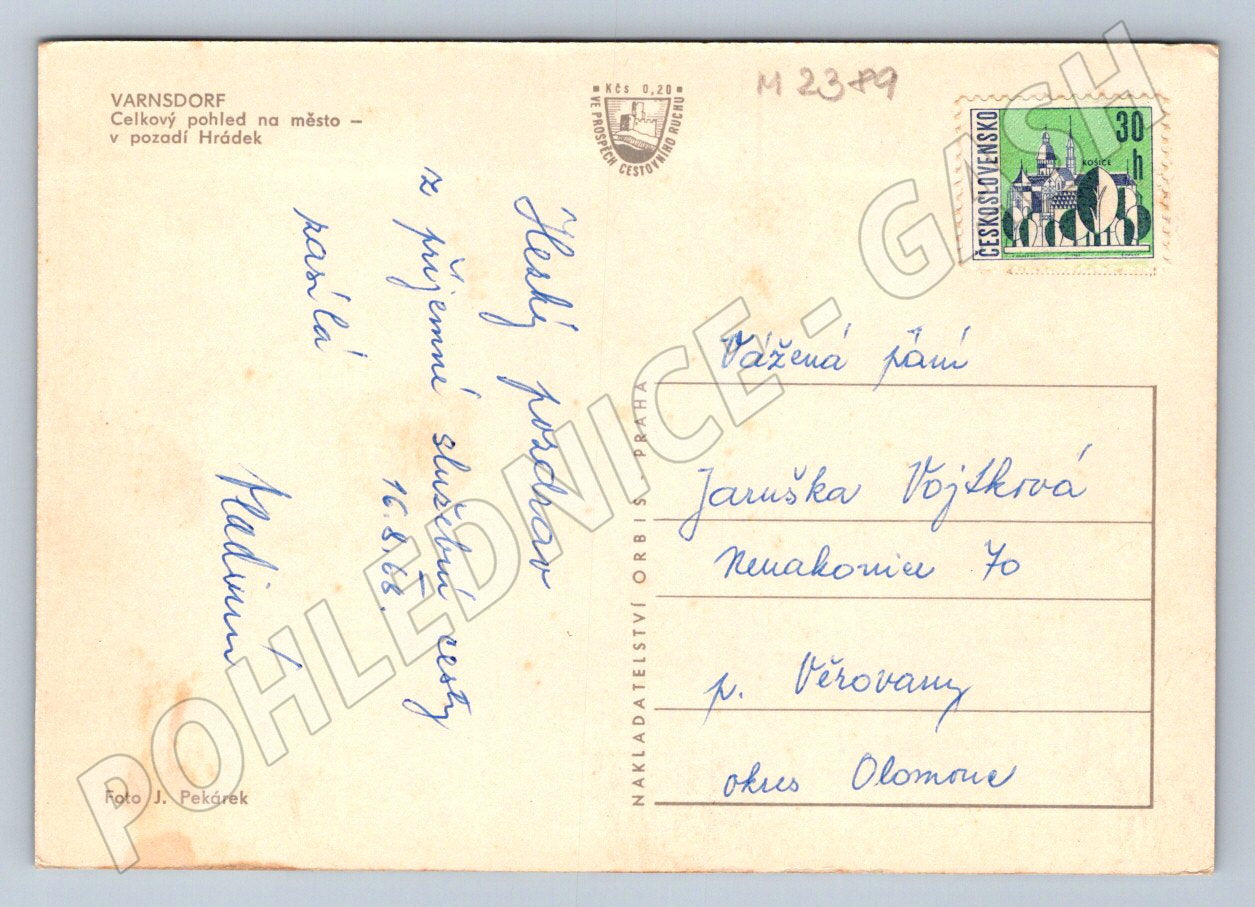 VARNSDORF
Celkový pohled na město –
v pozadí Hrádek
Kčs 0,20
VE PROSPĚCH CESTOVNÍHO RUCHU
M 2389
ČESKOSLOVENSKO
30 h
KOŠICE
Hezký pozdrav
z příjemné služební cesty
16.8.68.
zasílá
Vladimír
NAKLADATELSTVÍ ORBIS, PRAHA
Vážená paní
Jaruška Vojtková
Nenakonice 70
p. Věrovany
okres Olomouc
Foto J. Pekárek
POHLEDNICE - GASH